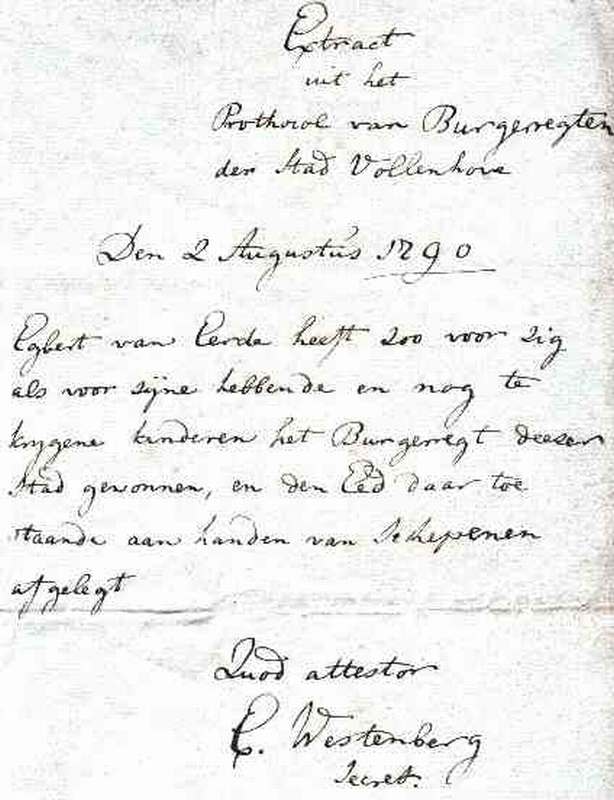 Extract
uit het
Prothocol van Burgerregten
der Stad Vollenhove
Den 2 Augustus 1790
Egbert van Eerde heeft zoo voor zig
als voor zijne hebbende en nog te
krygene kinderen het Burgerregt deezer
Stad gewonnen, en den Eed daar toe
staande aan handen van Schepenen
afgelegt
Quod attestor
E. Westenberg
Secret.